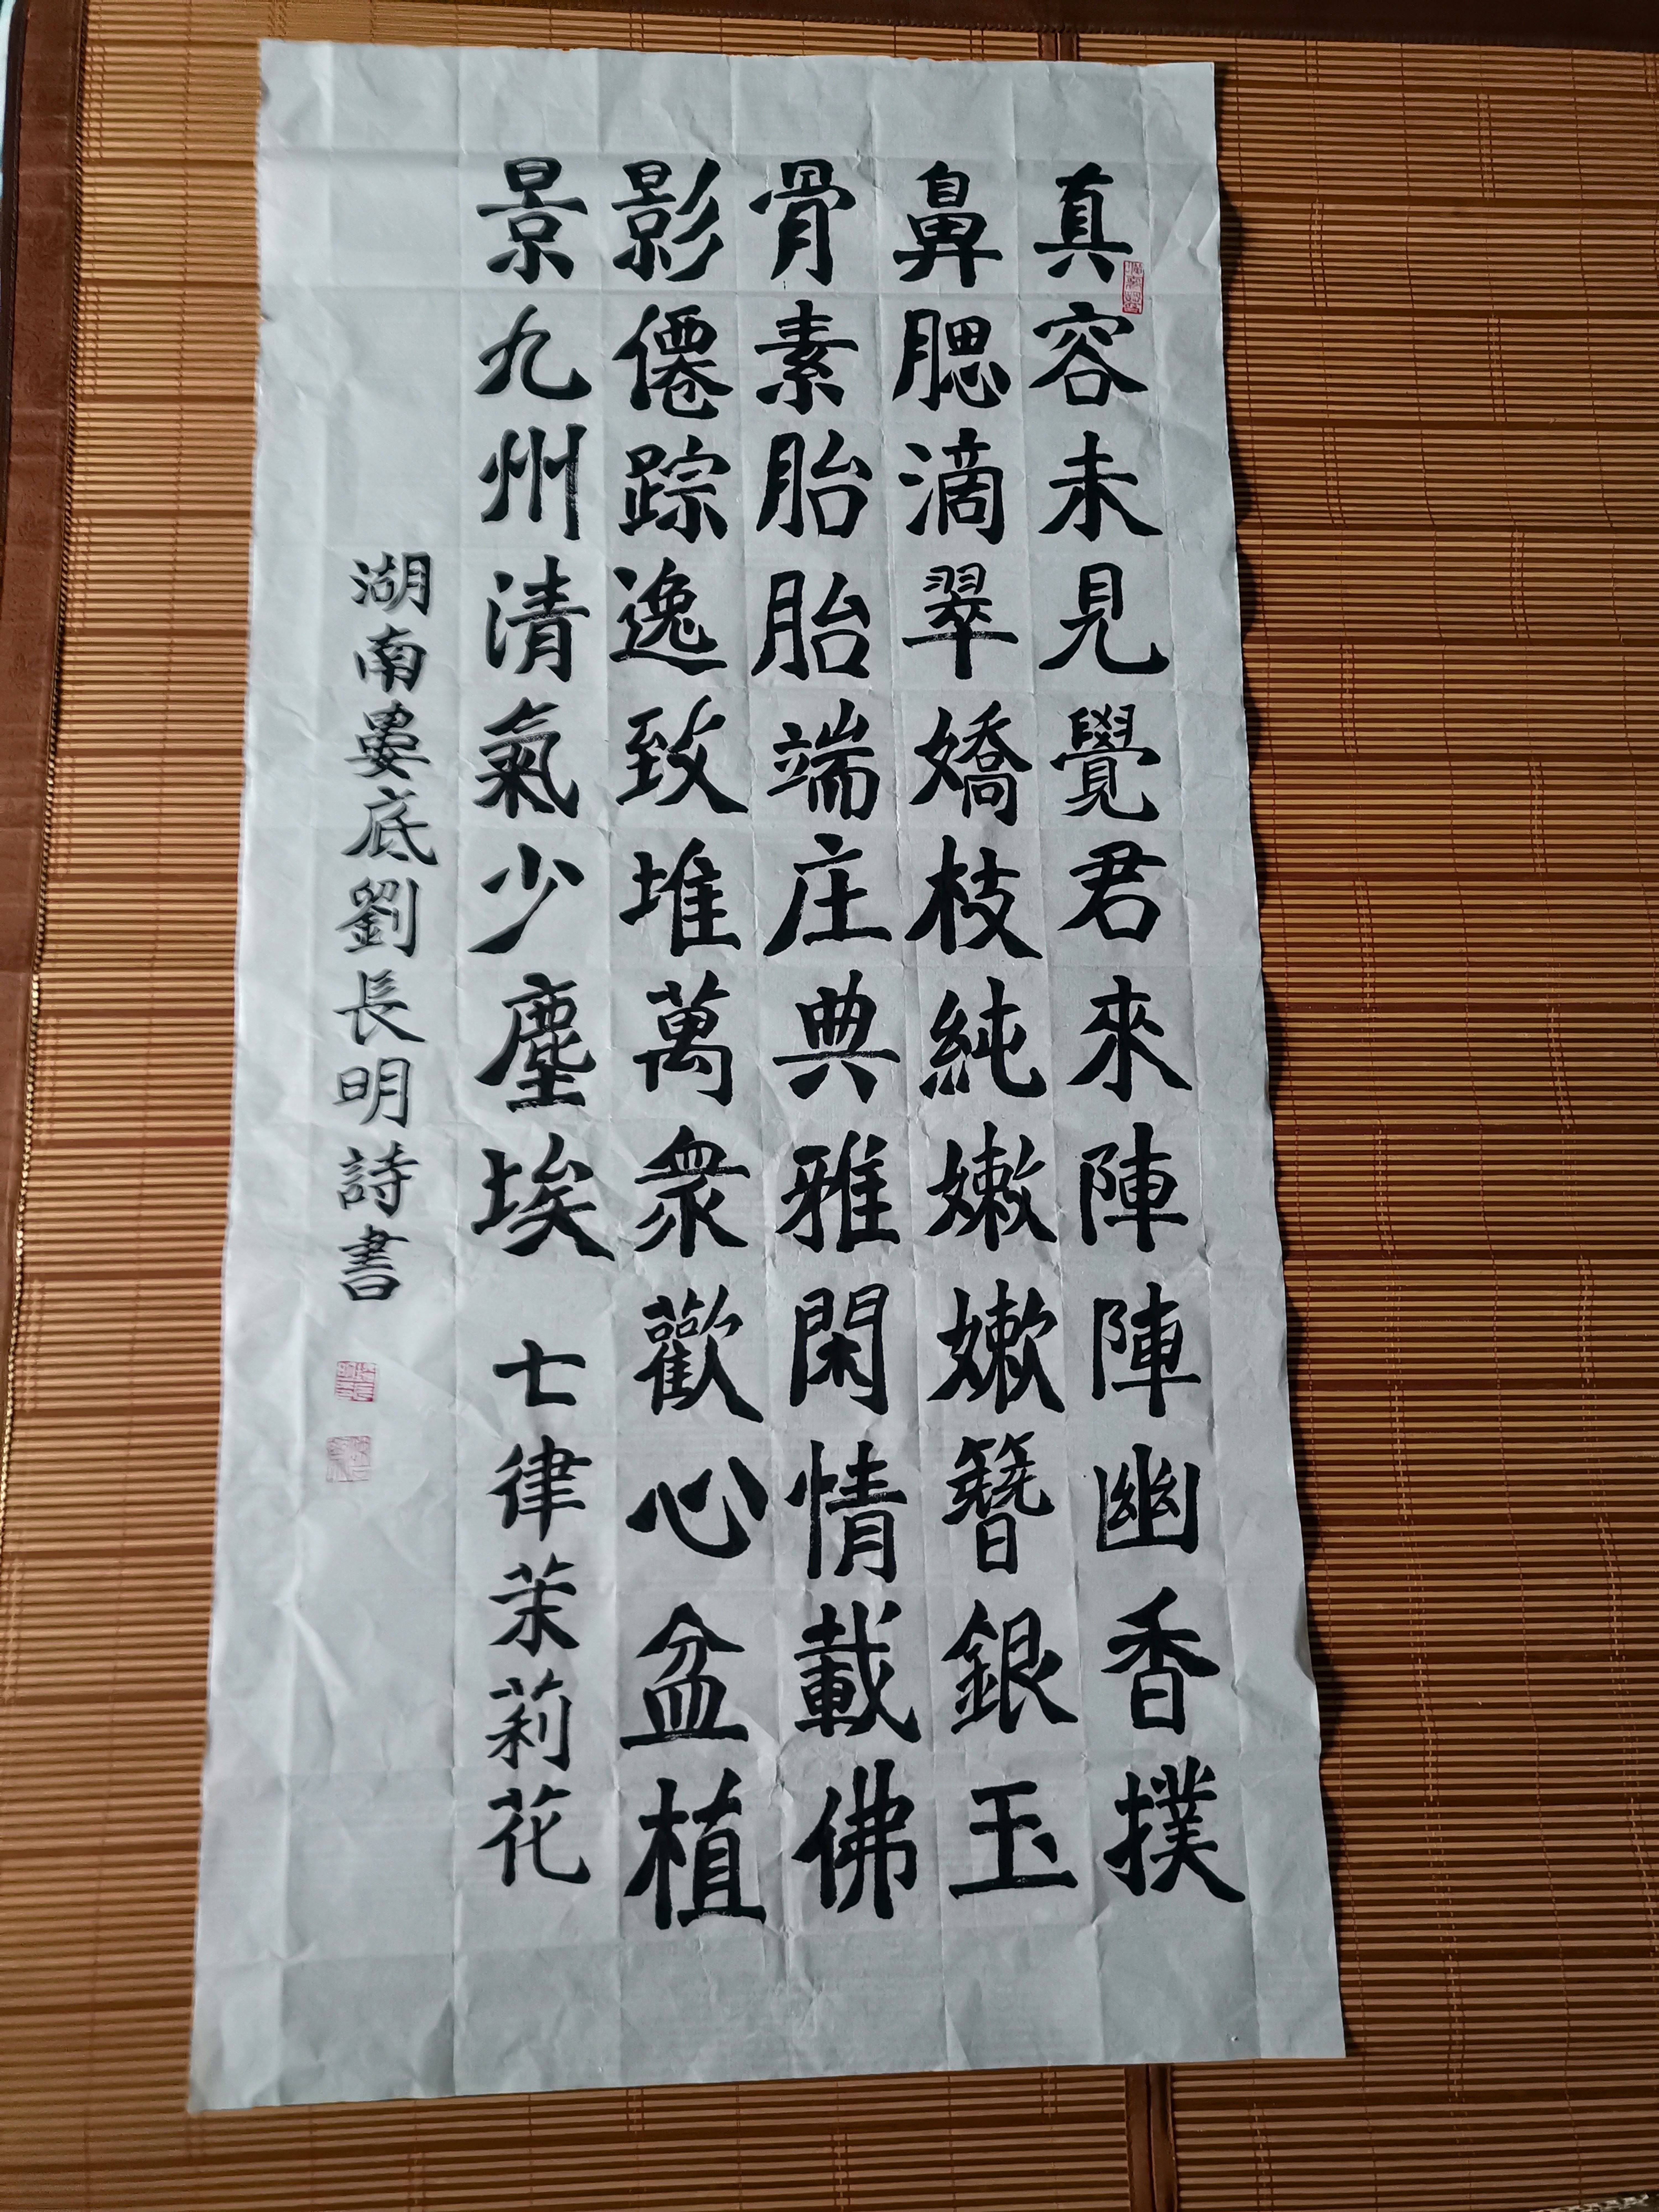 真容未見覺君來陣陣幽香撲
鼻腮滴翠嬌枝純嫩嫩簪銀玉
骨素胎胎端庄典雅閑情載佛
影僊踪逸致堆萬衆歡心盆植
景九州清氣少塵埃 七律茉莉花
湖南婁底劉長明詩書